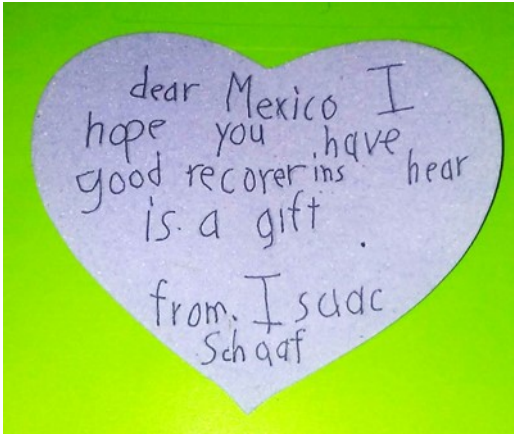 dear Mexico I
hope you have
good recorerins hear
is. a gift.
from. Isaac
Schaaf